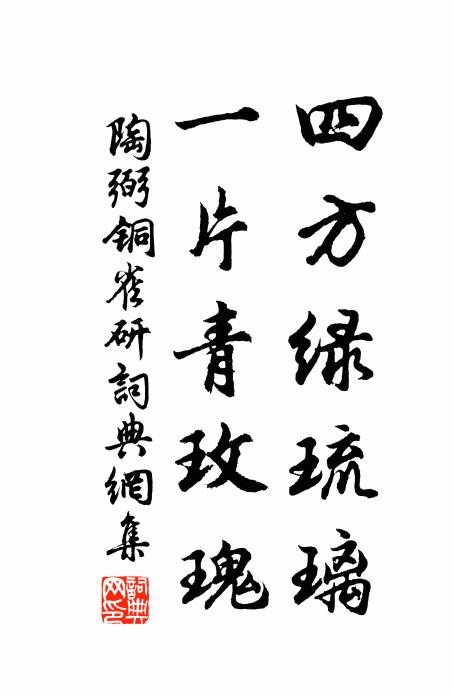 四方緑琉璃
一片青玫瑰
陶弼銅雀研詞典網集
詞典网印